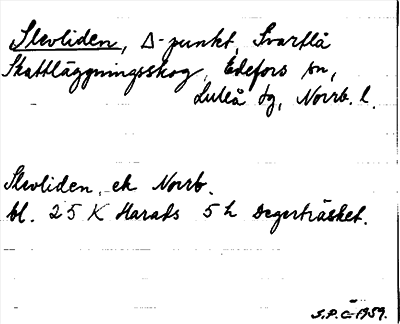 Slevliden, Δ-punkt, Svartlå
Skattläggningsskog, Edefors sn,
Luleå tg, Norrb. l.
Slevliden, ek Norrb.
bl. 25 K Harads 5 h Degerträsket.
S.P. C 1959.